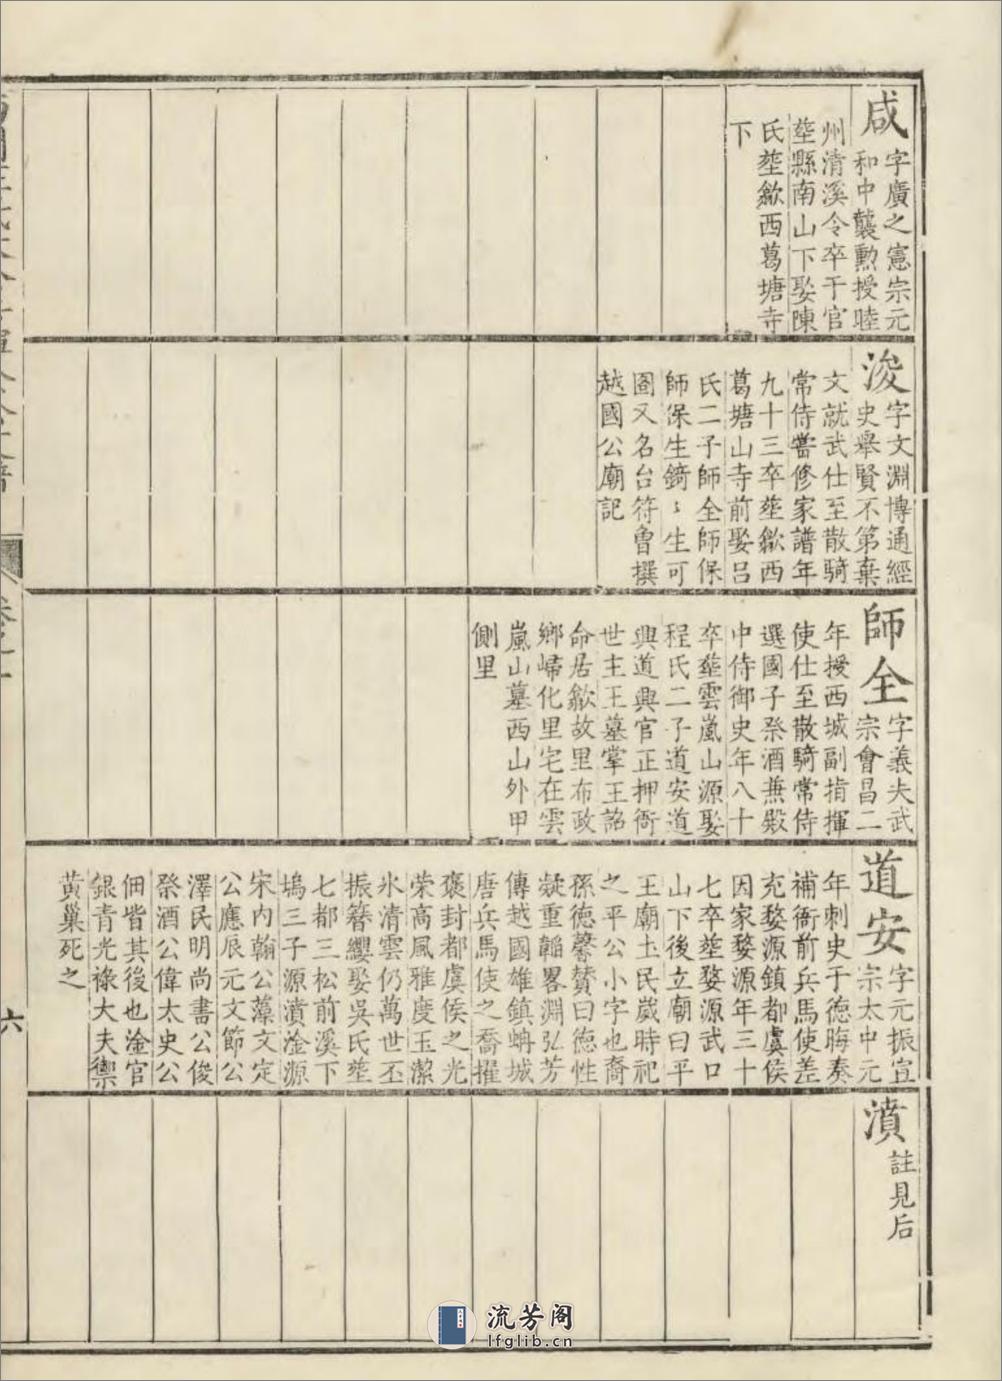 咸
字廣之憲宗元
和中襲勲授睦
州清溪令卒于官
塟縣南山下娶陳
氏塟歙西葛塘寺
下
浚
字文淵博通經
史舉賢不第棄
文就武仕至散騎
常侍嘗修家譜年
九十三卒塟歙西
葛塘山寺前娶吕
氏二子師全師保
師保生錡〻生可
圖又名台符曾撰
越國公廟記
師全
字義夫武
宗會昌二
年授西城副指揮
使仕至散騎常侍
選國子祭酒兼殿
中侍御史年八十
卒塟雲嵐山源娶
程氏二子道安道
興道興官正押衙
世主王墓掌王誥
命居歙故里布政
鄉歸化里宅在雲
嵐山墓西山外甲
側里
道安
字元振宣
宗太中元
年刺史于德晦奏
補衙前兵馬使差
充婺源鎮都虞侯
因家婺源年三十
七卒塟婺源武口
山下後立廟曰平
王廟土民歲時祀
之平公小字也裔
孫德馨贊曰德性
凝重韜畧淵弘芳
傳越國雄鎮蚺城
唐兵馬使之喬擢
褒封都虞侯之光
榮高風雅度玉潔
氷清雲仍萬世丕
振簪纓娶吳氏塟
七都三松前溪下
塢三子源濆淦源
宋内翰公藻文定
公應辰元文節公
澤民明尚書公俊
祭酒公偉太史公
佃皆其後也淦官
銀青光祿大夫禦
黄巢死之
濆
註見后
六
流芳阁
lfglib.cn